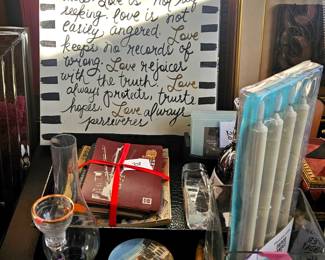 seeking. love is not
easily angered. Love
keeps no records of
wrong. Love rejoices
with the truth. Love
always protects, trusts
hopes. Love always
perseveres